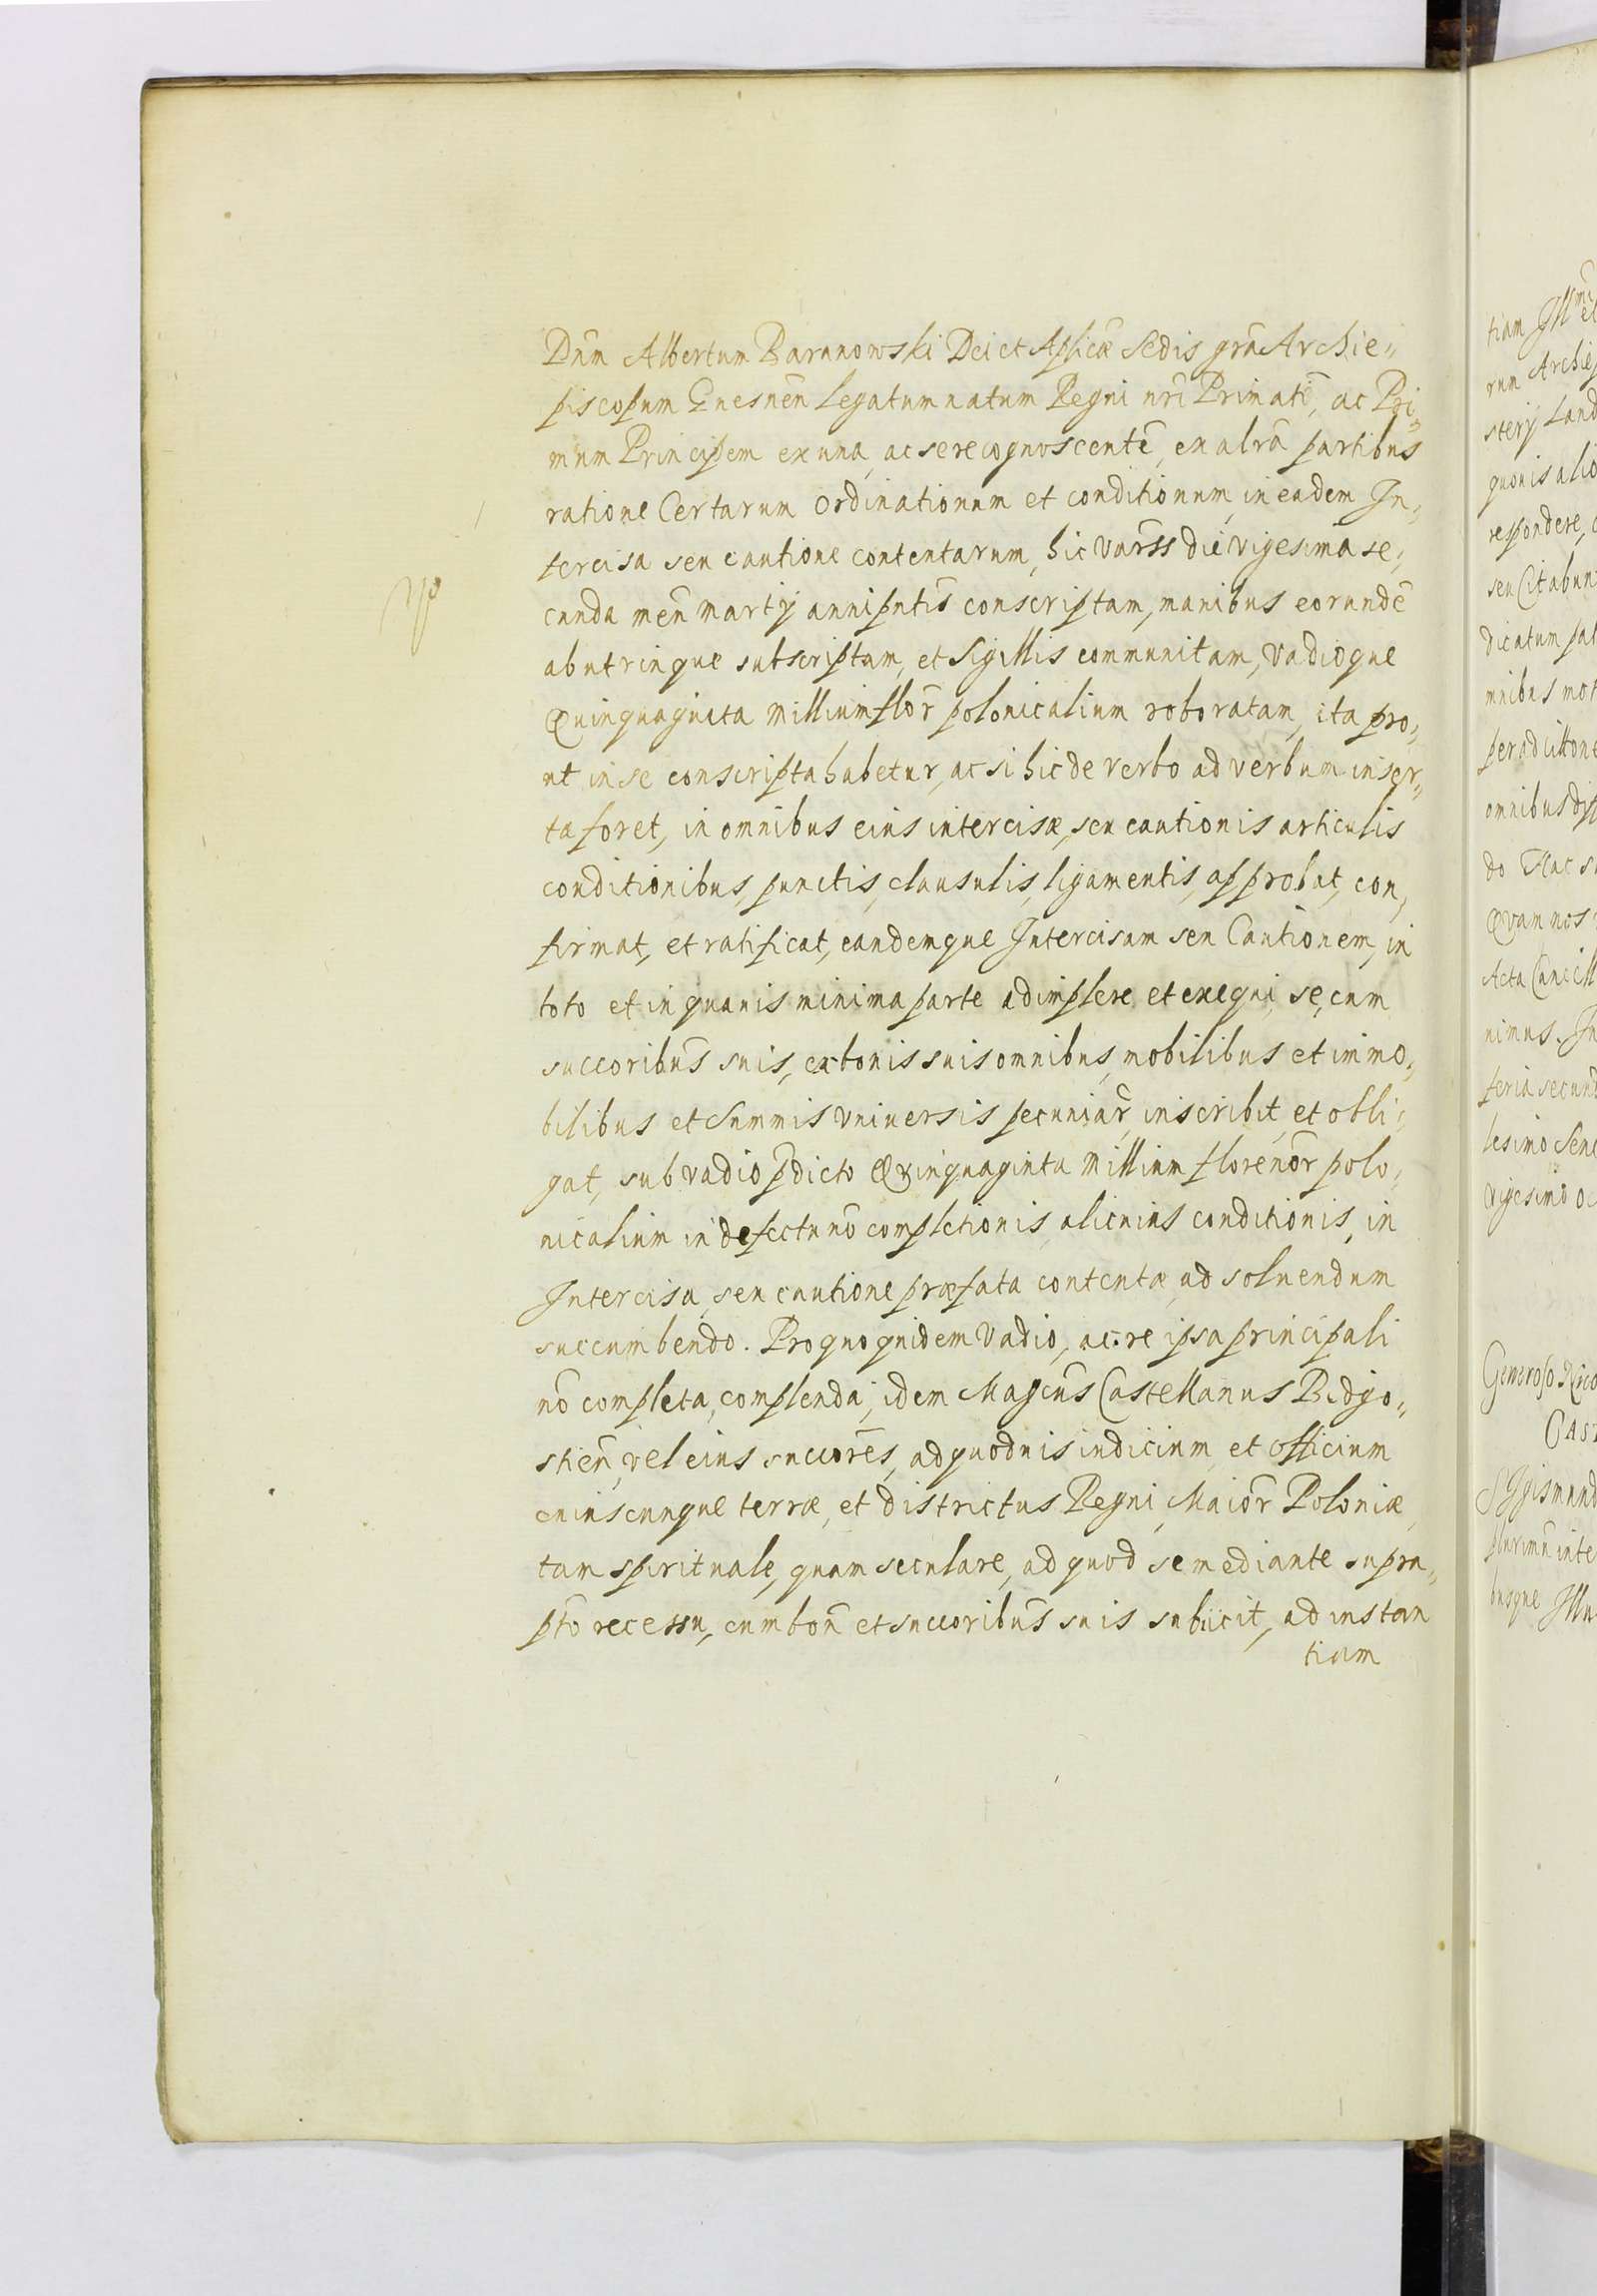 Dnm Albertum Baranowski Dei et Aplicæ Sedis gra Archie„
piscopum Gnesnen Legatum natum Regni nri Primatē, ac Pri„
mum Principem ex una, ac se recognoscentē, ex altrā partibus
ratione Certarum ordinationum et conditionum, in eadem In„
tercisa seu cautione contentarum, hic Varss die vigesima se„
cunda men Martij anni pntis conscriptam, manibus eorundē
ab utrinque subscriptam, et Sigillis communitam, Vadioque
Quinquaginta Millium flor polonicalium roboratam, ita pro„
ut in se conscripta habetur, ac si hic de verbo ad verbum inser„
ta foret, in omnibus eius intercisæ, seu cautionis articulis
conditionibus, punctis, clausulis, ligamentis, approbat, con„
firmat, et ratificat, eandemque Intercisam seu Cautionem, in
toto et in quauis minima parte adimplere et exequi, se, cum
succoribus suis, ex bonis suis omnibus, mobilibus et immo„
bilibus et Summis vniuersis pecuniar, inscribit, et obli„
gat, sub vadio pdicto Quinquaginta Millium florenor polo„
nicalium in defectu nō completionis, alicuius conditionis, in
Intercisa, seu cautione præfata contentæ, ad soluendum
succumbendo. Pro quo quidem Vadio, ac re ipsa principali
nō completa, complenda, idem Magcus Castellanus Bidgo„
stien, vel eius succores, ad quoduis iudicium, et officium
cuiuscunque terræ, et districtus Regni, Maior Poloniæ,
tam spirituale, quam seculare, ad quod se mediante supra„
pto recessu, cum bon et succoribus suis subijcit, ad instan
tiam
tiam Illmi
rum Archiep
sterij Land
quouis alio
respondere,
seu Citabun
dicatum
mnibus
omnibus
do Hac
Quam nos
Acta Cancell
nimus. In
feria secund
lesimo Sexc
vigesimo oc
Generoso
Cast
Sigismund
plurimū inte
busque Illu